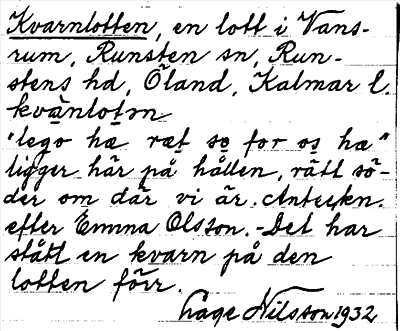 Kvarnlotten, en lott i Vans-
rum, Runsten sn, Run-
stens hd, Öland, Kalmar l.
kvànlotən
"lego hæ ræt sə for os hæ"
ligger här på hållen, rätt sö-
der om där vi är. Anteckn.
efter Emma Olsson. - Det har
stått en kvarn på den
lotten förr.
Åge Nilsson 1932